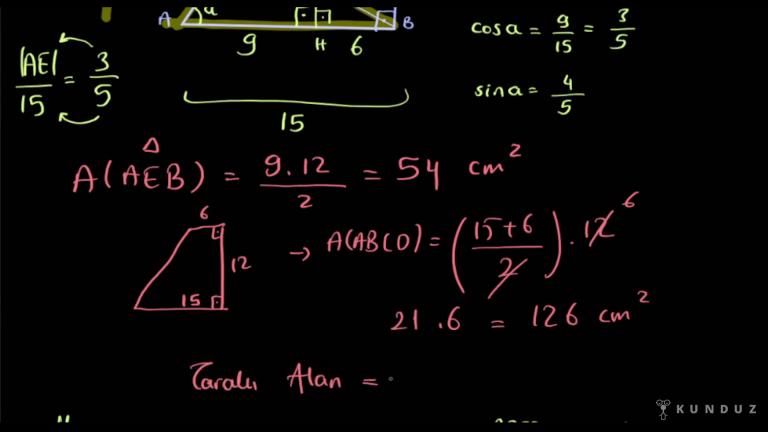 A α B
9 H 6
15
cos a = 9/15 = 3/5
sin a = 4/5
|AE|/15 = 3/5
A(AEB) = 9.12/2 = 54 cm²
6
12
15
→ A(ABCD) = (15+6/2) . 12 6
21 . 6 = 126 cm²
Taralı Alan =
KUNDUZ